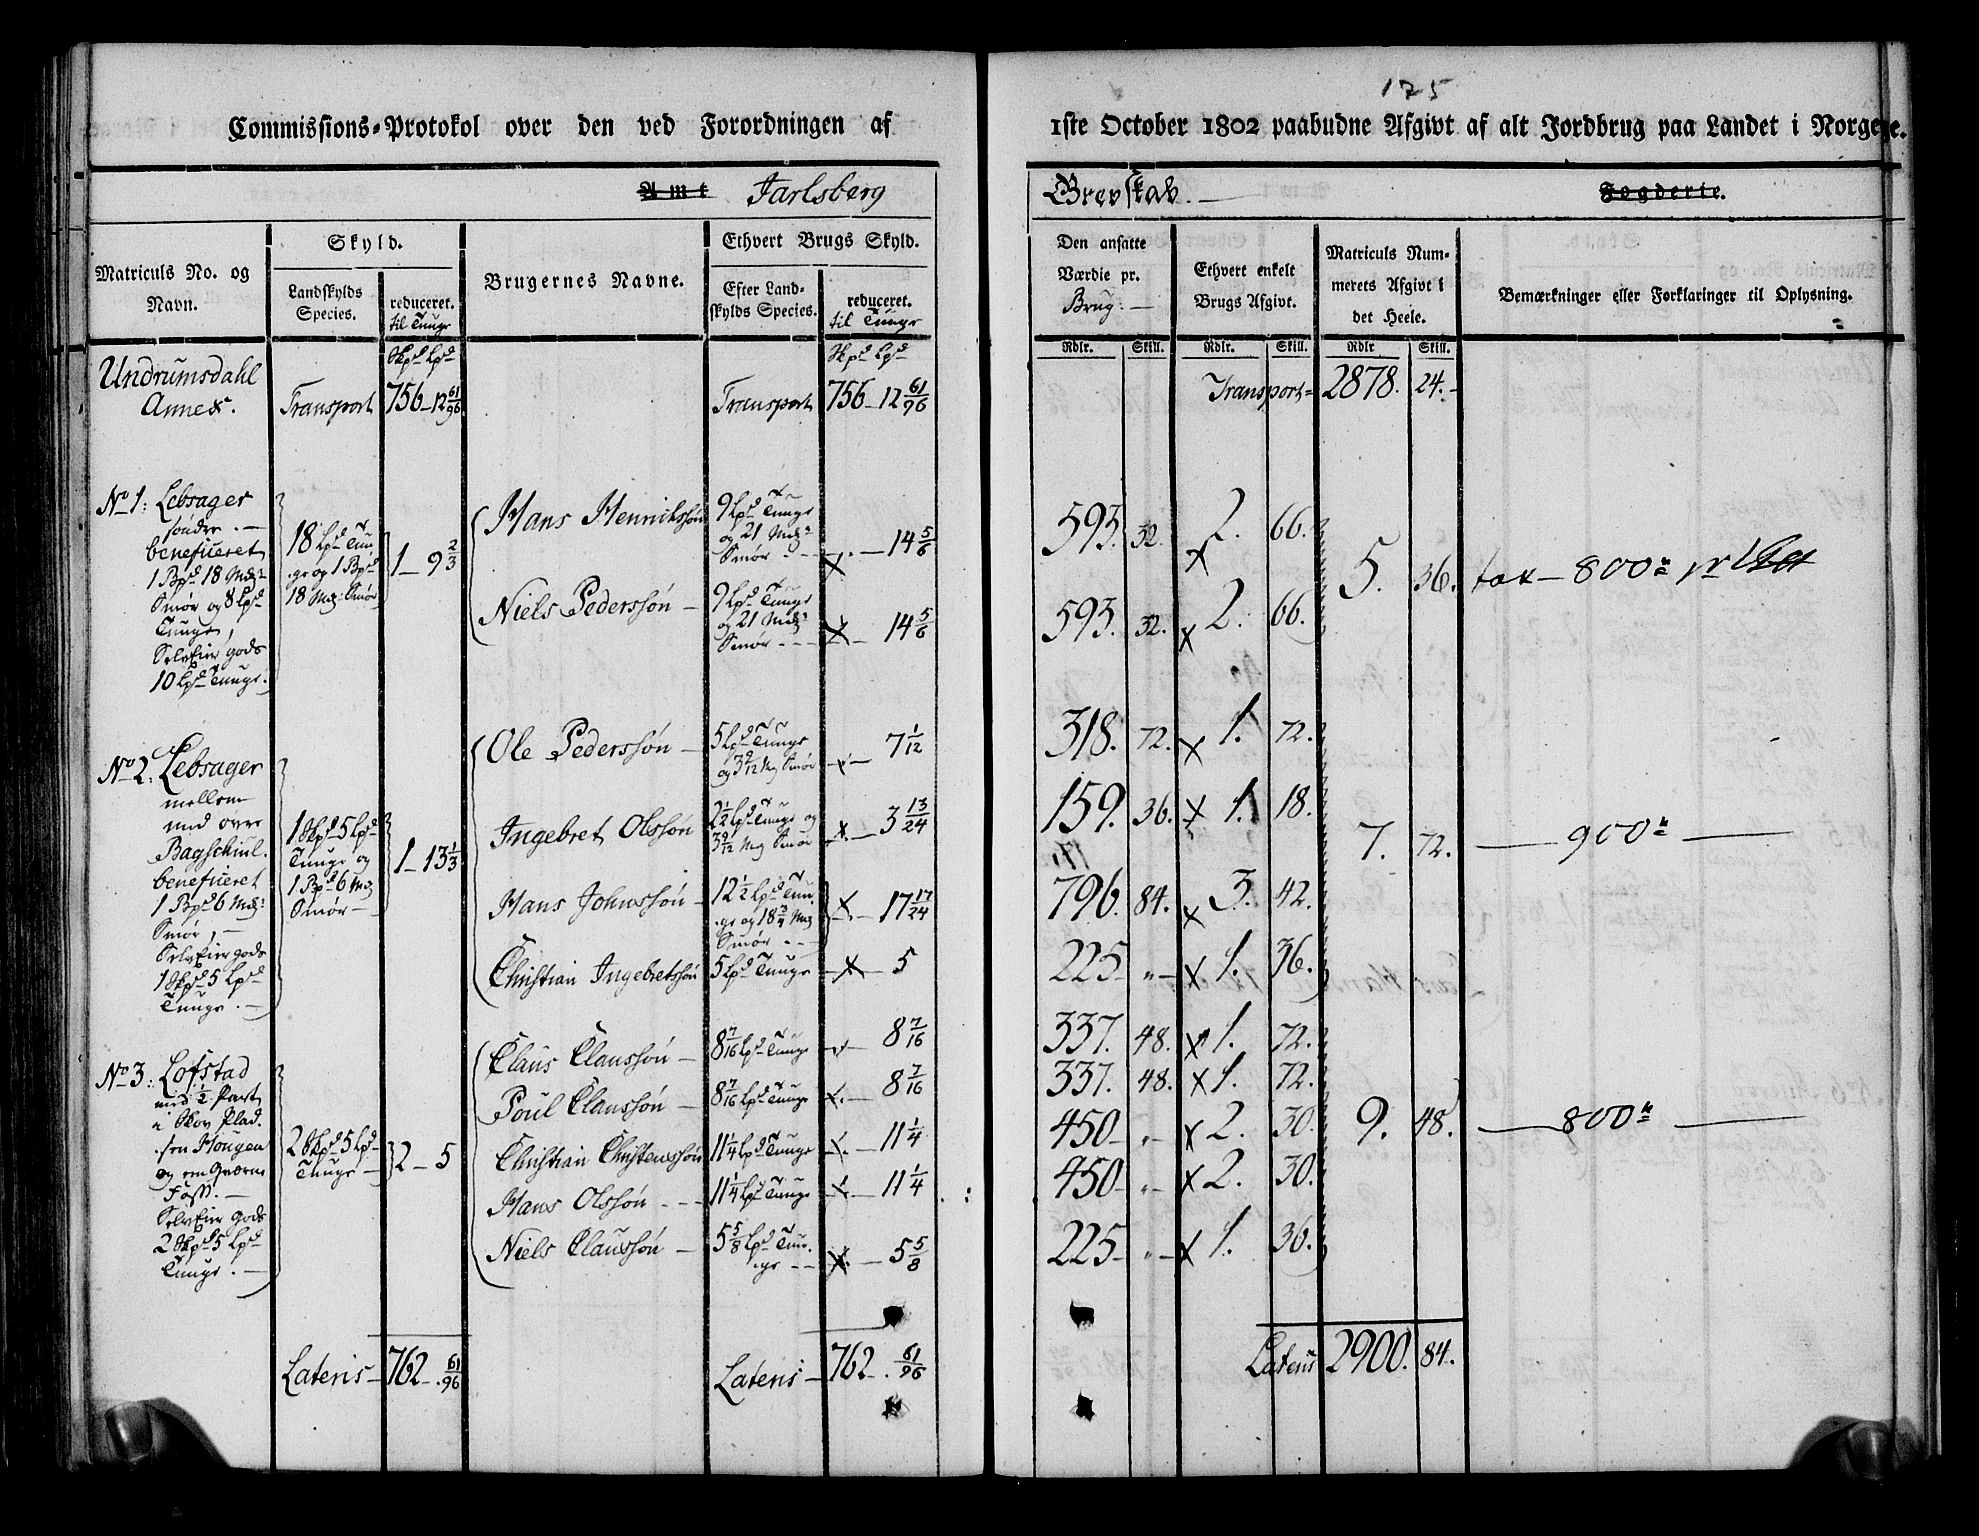 175
Commissions-Protokol over den ved Forordningen af 1ste October 1802 paabudne Afgivt af alt Jordbrug paa Landet i Norge.
Amt Jarlsberg Grevskab. Fogderie.
Matriculs No. og Navn.
Skyld.
Landskylds Species.
reduceret. til Tunge
Brugernes Navne.
Ethvert Brugs Skyld.
Efter Landskylds Species.
reduceret. til Tunge
Den ansatte Værdie pr. Brug:
Ethvert enkelt Brugs Afgivt.
Matriculs Nummerets Afgivt i det Heele.
Bemærkninger eller Forklaringer til Oplysning.
Skpd Lpd
Skpd Lpd
Rdlr. Skill. Rdlr. Skill. Rdlr Skill.
Undrumsdahl
Annex.
Transport 756 - 12 61/96
Transport 756 - 12 61/96
Transport 2878. 24.
No 1: Lebsager
søndre.
beneficeret
1 Bpd 18 Mrk
Smør og 8 Lpd
Tunge,
SelvEier gods
10 Lpd Tunge.
18 Lpd Tun-
ge og 1 Bpd
18 Mrk Smør
1 - 9 2/3
Hans Henrichssøn 9 Lpd Tunge
og 21 Mrk
Smør - 14 5/6
593. 32. 2. 66.
Niels Pederssøn 9 Lpd Tunge
og 21 Mrk
Smør - 14 5/6
593. 32. 2. 66.
5. 36. tax 800
No 2: Lebsager
mellem
med øvre
Bagschiul.
beneficeret
1 Bpd 6 Mrk
Smør,
SelvEier gods
1 Skpd 5 Lpd
Tunge.
1 Skpd 5 Lpd
Tunge og
1 Bpd 6 Mrk
Smør
1 - 13 1/3
Ole Pederssøn 5 Lpd Tunge
og 3 9/12 Mrk Smør 7 1/12
318. 72. 1. 72.
Ingebret Olssøn 2 1/2 Lpd Tunge og
3 9/12 Mrk Smør 3 13/24
159. 36. 1. 18.
Hans Johnssøn 12 1/2 Lpd Tun-
ge og 18 3/4 Mrk
Smør 17 17/24
796. 84. 3. 42.
Christian Ingebretssøn 5 Lpd Tunge 5
225 " 1. 36.
7. 72. 900
No 3: Lofstad
med 1/2 Part
i Skov Plad-
sen Hougen
og en Qværne
Foss.
SelvEier gods
2 Skpd 5 Lpd
Tunge.
2 Skpd 5 Lpd
Tunge
2 - 5
Claus Claussøn 8 7/16 Lpd Tunge 8 7/16
337. 48. 1. 72.
Poul Claussøn 8 7/16 Lpd Tunge 8 7/16
337. 48. 1. 72.
Christian Christenssøn 11 1/4 Lpd Tunge 11 1/4
450 " 2. 30.
Hans Olssøn 11 1/4 Lpd Tunge 11 1/4
450 " 2. 30.
Niels Claussøn 5 5/8 Lpd Tun-
ge 5 5/8
225 " 1. 36.
9. 48. 800
Lateris 762 - . 61/96
Lateris 762 - . 61/96
Lateris 2900. 84.